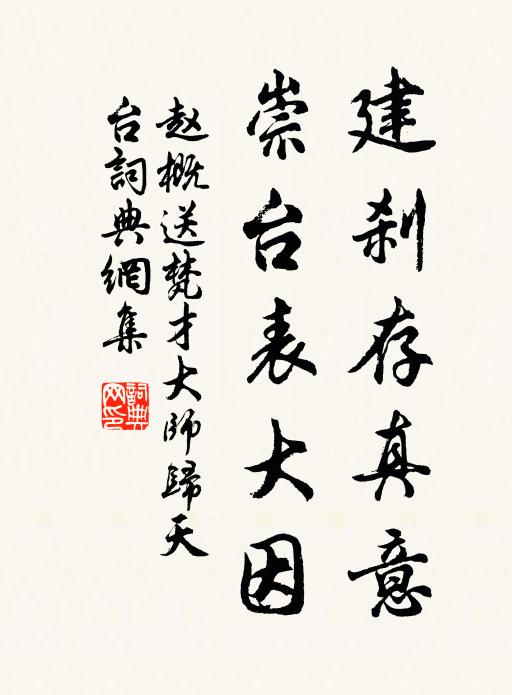 建刹存真意
崇台表大因
赵概送梵才大師歸天
台詞典網集
詞典
网印